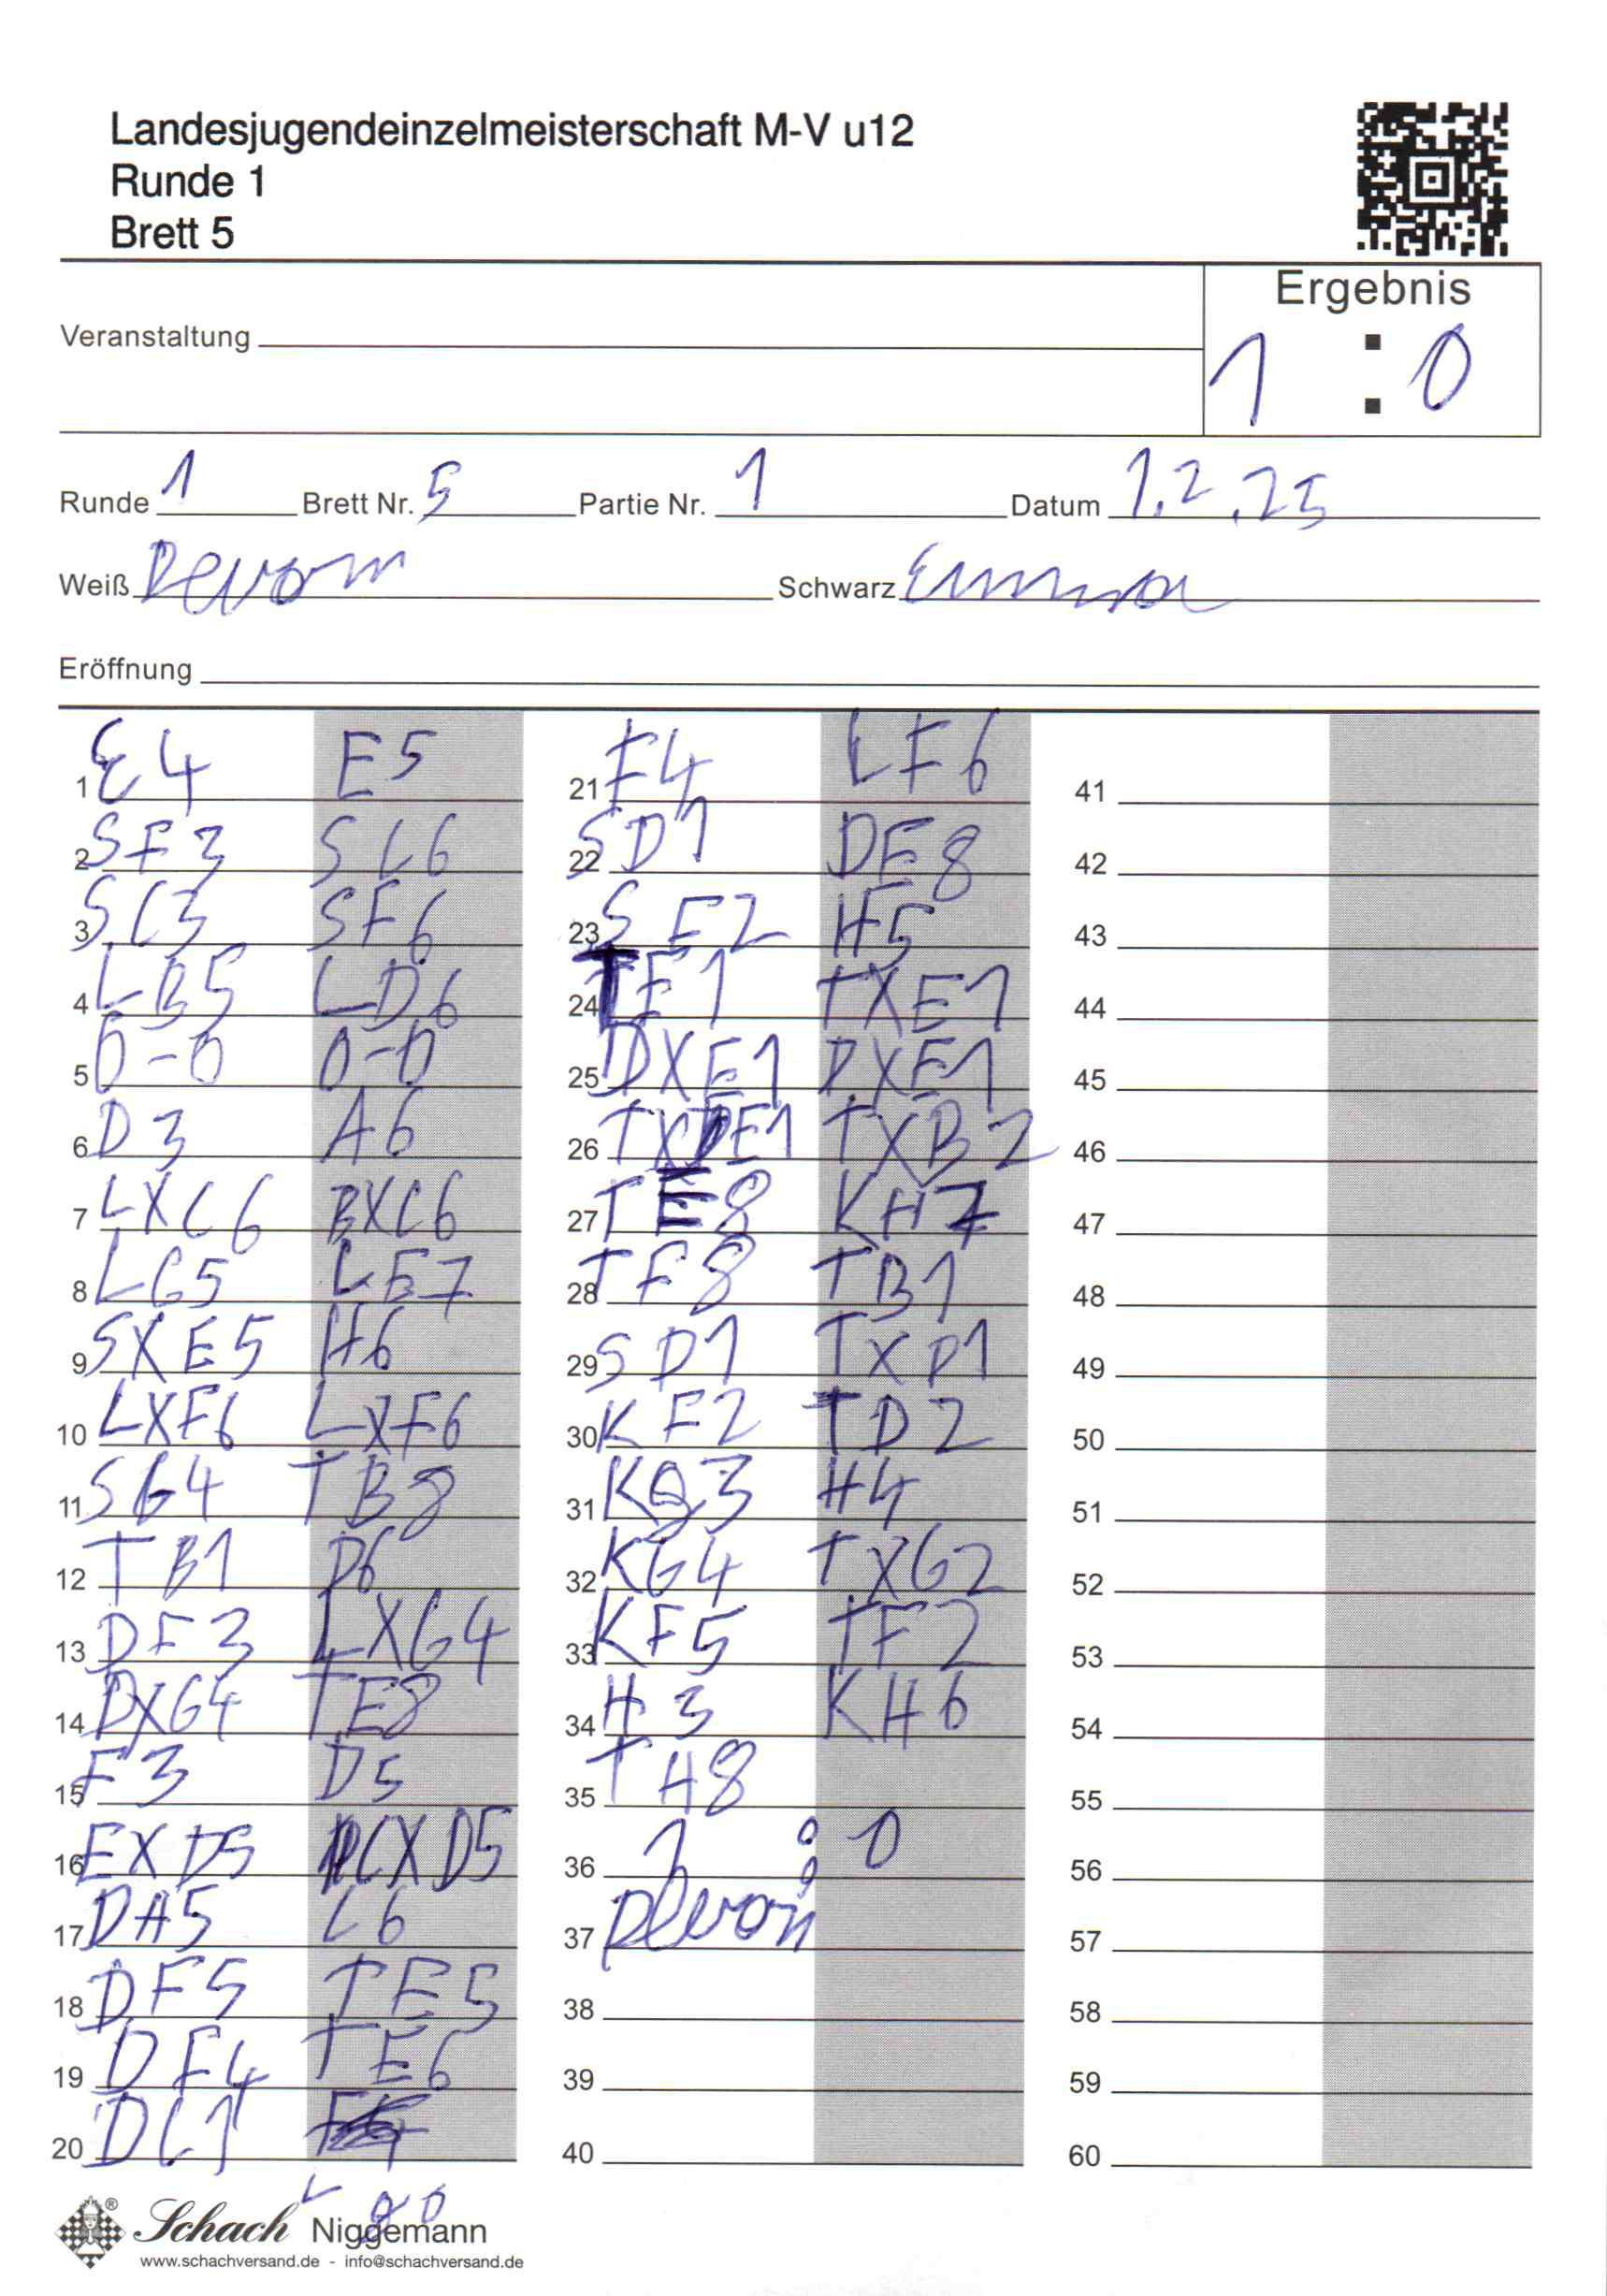 Landesjugendeinzelmeisterschaft M-V u12
Runde 1
Brett 5
Ergebnis
1 : 0
Veranstaltung
Runde 1 Brett Nr. 5 Partie Nr. 1 Datum 1.2.25
Weiß Devon Schwarz Emma
Eröffnung
1 E4 E5
2 SF3 SC6
3 SC3 SF6
4 LB5 LD6
5 0-0 0-0
6 D3 A6
7 LXC6 BXC6
8 LG5 LE7
9 SXE5 H6
10 LXF6 LXF6
11 SG4 TB8
12 TB1 D6
13 DF3 LXG4
14 DXG4 TE8
15 F3 D5
16 EXD5 CXD5
17 DH5 C6
18 DF5 TE5
19 DF4 TE6
20 DC1
L g5
21 F4 LF6
22 SD1 DE8
23 SE2 H5
24 TF1 TXE1
25 DXE1 DXE1
26 TXE1 TXB2
27 TE8 KH7
28 TF8 TB1
29 SD1 TXD1
30 KF2 TD2
31 KG3 H4
32 KG4 TXG2
33 KF5 TF2
34 H3 KH6
35 TH8
36 1 : 0
37 Devon
38
39
40
41
42
43
44
45
46
47
48
49
50
51
52
53
54
55
56
57
58
59
60
Schach Niggemann
www.schachversand.de - info@schachversand.de